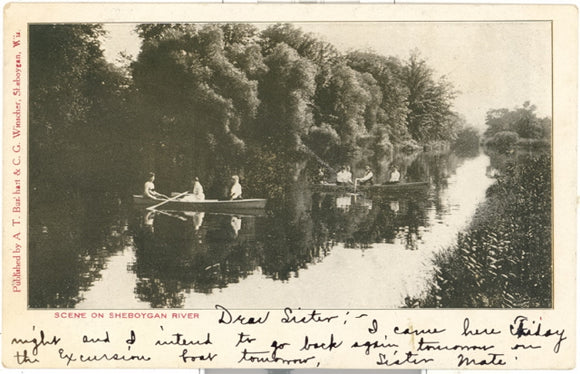 Published by A. T. Barnhart & C. G. Winscher, Sheboygan, Wis.
SCENE ON SHEBOYGAN RIVER
Dear Sister;- I came here Friday
night and I intend to go back again tomorrow on
the Excursion boat tomorrow, Sister Mate